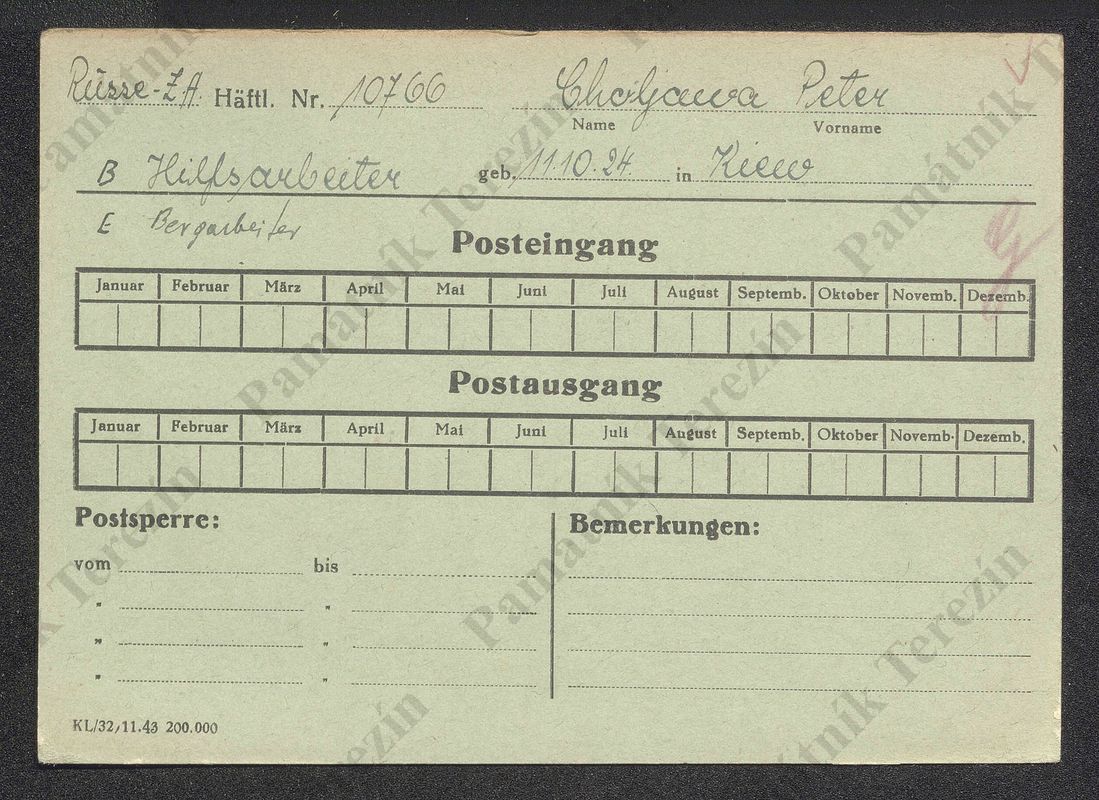 Russe-Z.A. Häftl. Nr. 10766 Choljawa Peter
Name Vorname
B Hilfsarbeiter geb. 11.10.24. in Kiew
E Bergarbeiter
Posteingang
Januar Februar März April Mai Juni Juli August Septemb. Oktober Novemb. Dezemb.
Postausgang
Januar Februar März April Mai Juni Juli August Septemb. Oktober Novemb. Dezemb.
Postsperre: Bemerkungen:
vom bis
" "
" "
" "
KL/32/11.43 200.000
Památník Terezín